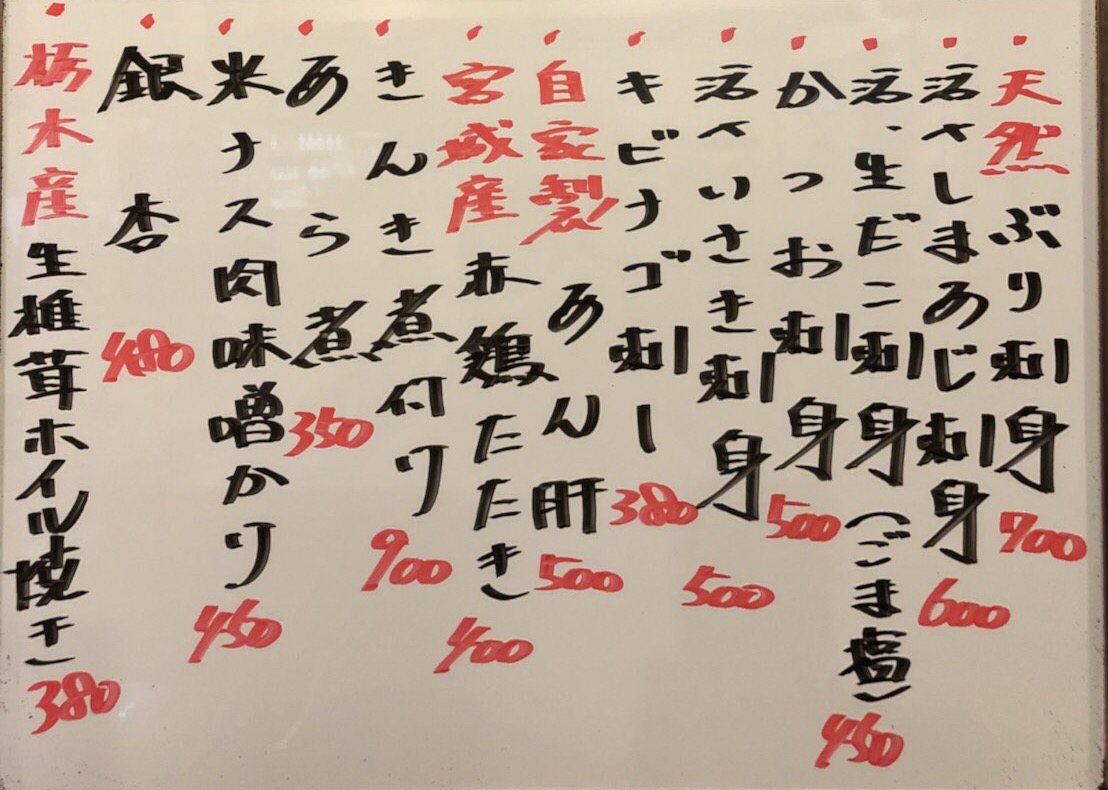 ・天然ぶり刺身 700
・活〆しまあじ刺身 600
・活・生だこ刺身(ごま塩) 450
・かつお刺身 500
・活〆いさき刺身 500
・キビナゴ刺し 380
・自家製あん肝 500
・宮城産赤鶏たたき 400
・きんき煮付け 900
・あら煮 350
・米ナス肉味噌かけ 450
・銀杏 480
・栃木産生椎茸ホイル焼き 380